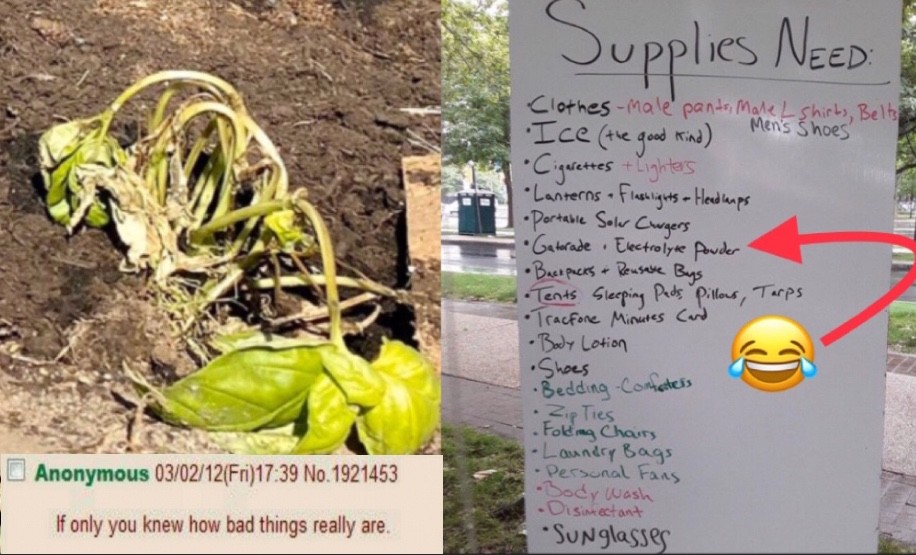 Anonymous 03/02/12(Fri)17:39 No.1921453
If only you knew how bad things really are.
Supplies NEED:
•Clothes - Male pants, Male L shirts, Belts
Men's Shoes
•ICE (the good kind)
•Cigarettes + Lighters
•Lanterns + Flashlights + Headlamps
•Portable Solar Chargers
•Gatorade + Electrolyte Powder
•Backpacks + Reusable Bags
•Tents Sleeping Pads, Pillows, Tarps
•Tracfone Minutes Card
•Body Lotion
•Shoes
•Bedding - Comforters
•Zip Ties
•Folding Chairs
•Laundry Bags
•Personal Fans
•Body Wash
•Disinfectant
•Sunglasses